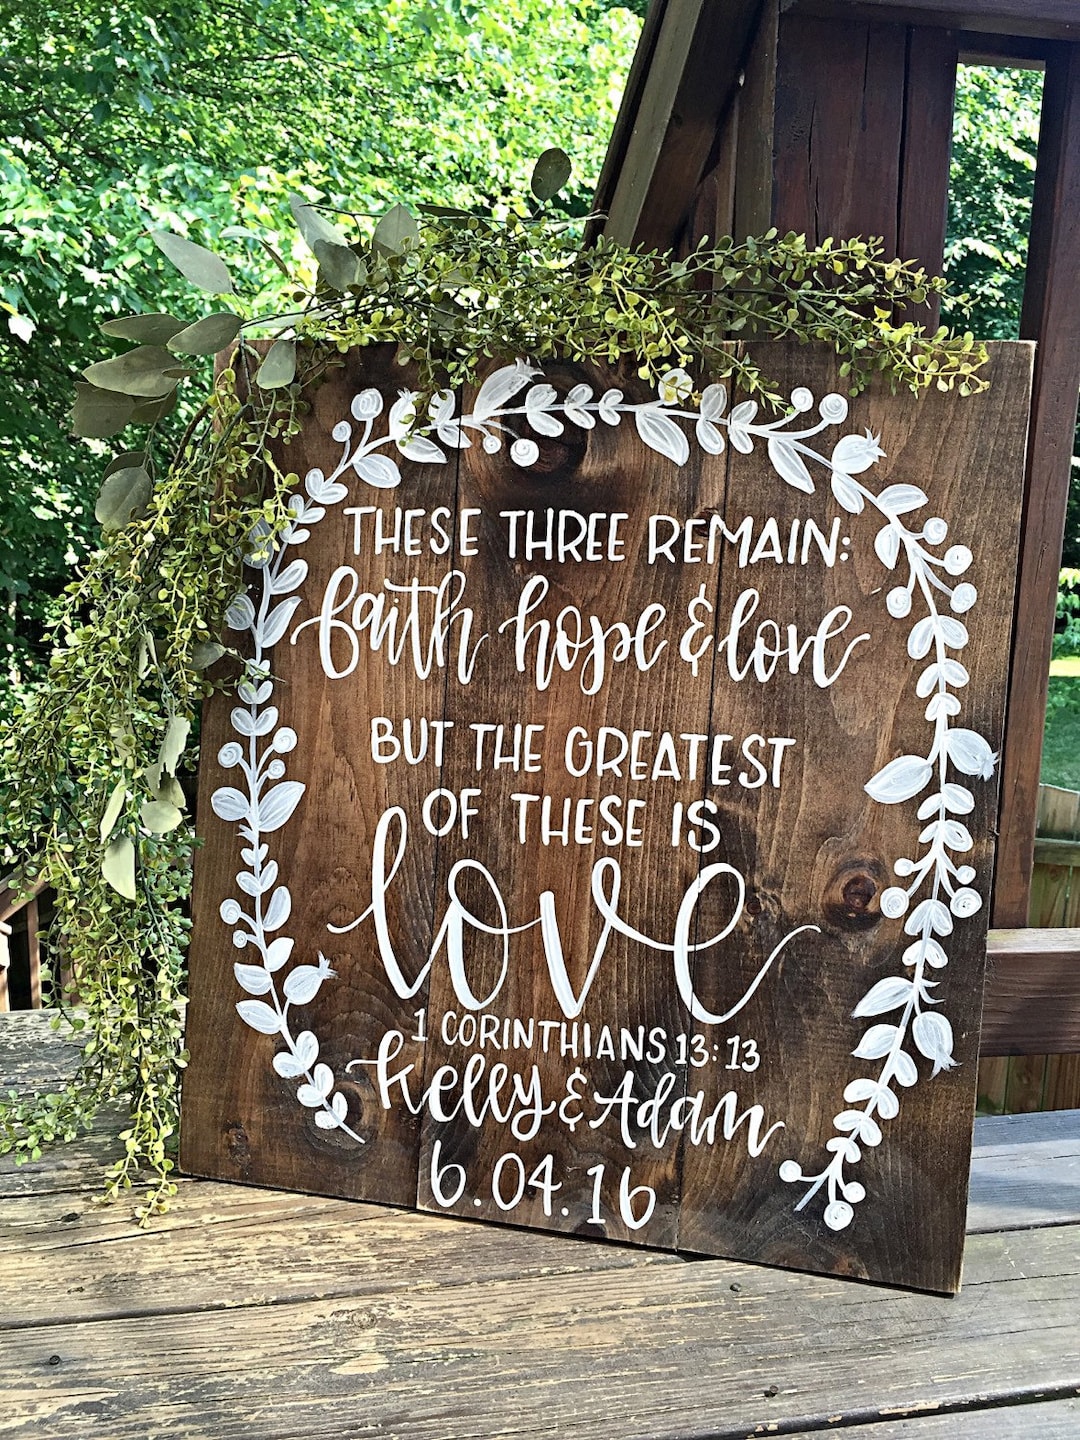 THESE THREE REMAIN:
faith hope & love
BUT THE GREATEST
OF THESE IS
love
1 CORINTHIANS 13:13
Kelly & Adam
6.04.16